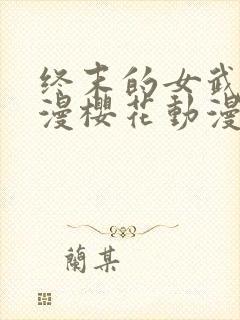 终末的女武
漫櫻花動漫
蘭某